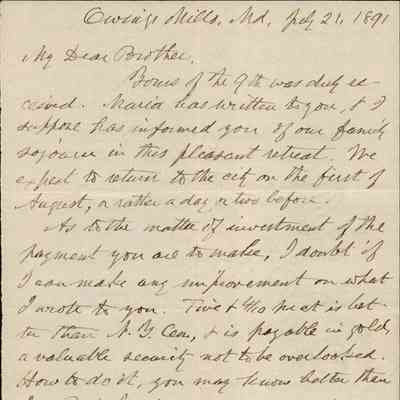 Owings Mills, Md, July 21, 1891
My Dear Brother,
Yours of the 9th was duly re-
ceived. Maria has written to you, & I
suppose has informed you of our family
sojourn in this pleasant retreat. We
expect to return to the city on the first of
August, or rather a day or two before.
As to the matter of investment of the
payment you are to make, I doubt if
I can make any improvement on what
I wrote to you. Five & 4/10 pr ct is bet-
ter than N. Y. Cen, & is payable in gold,
a valuable security not to be overlooked.
How to do it, you may know better than